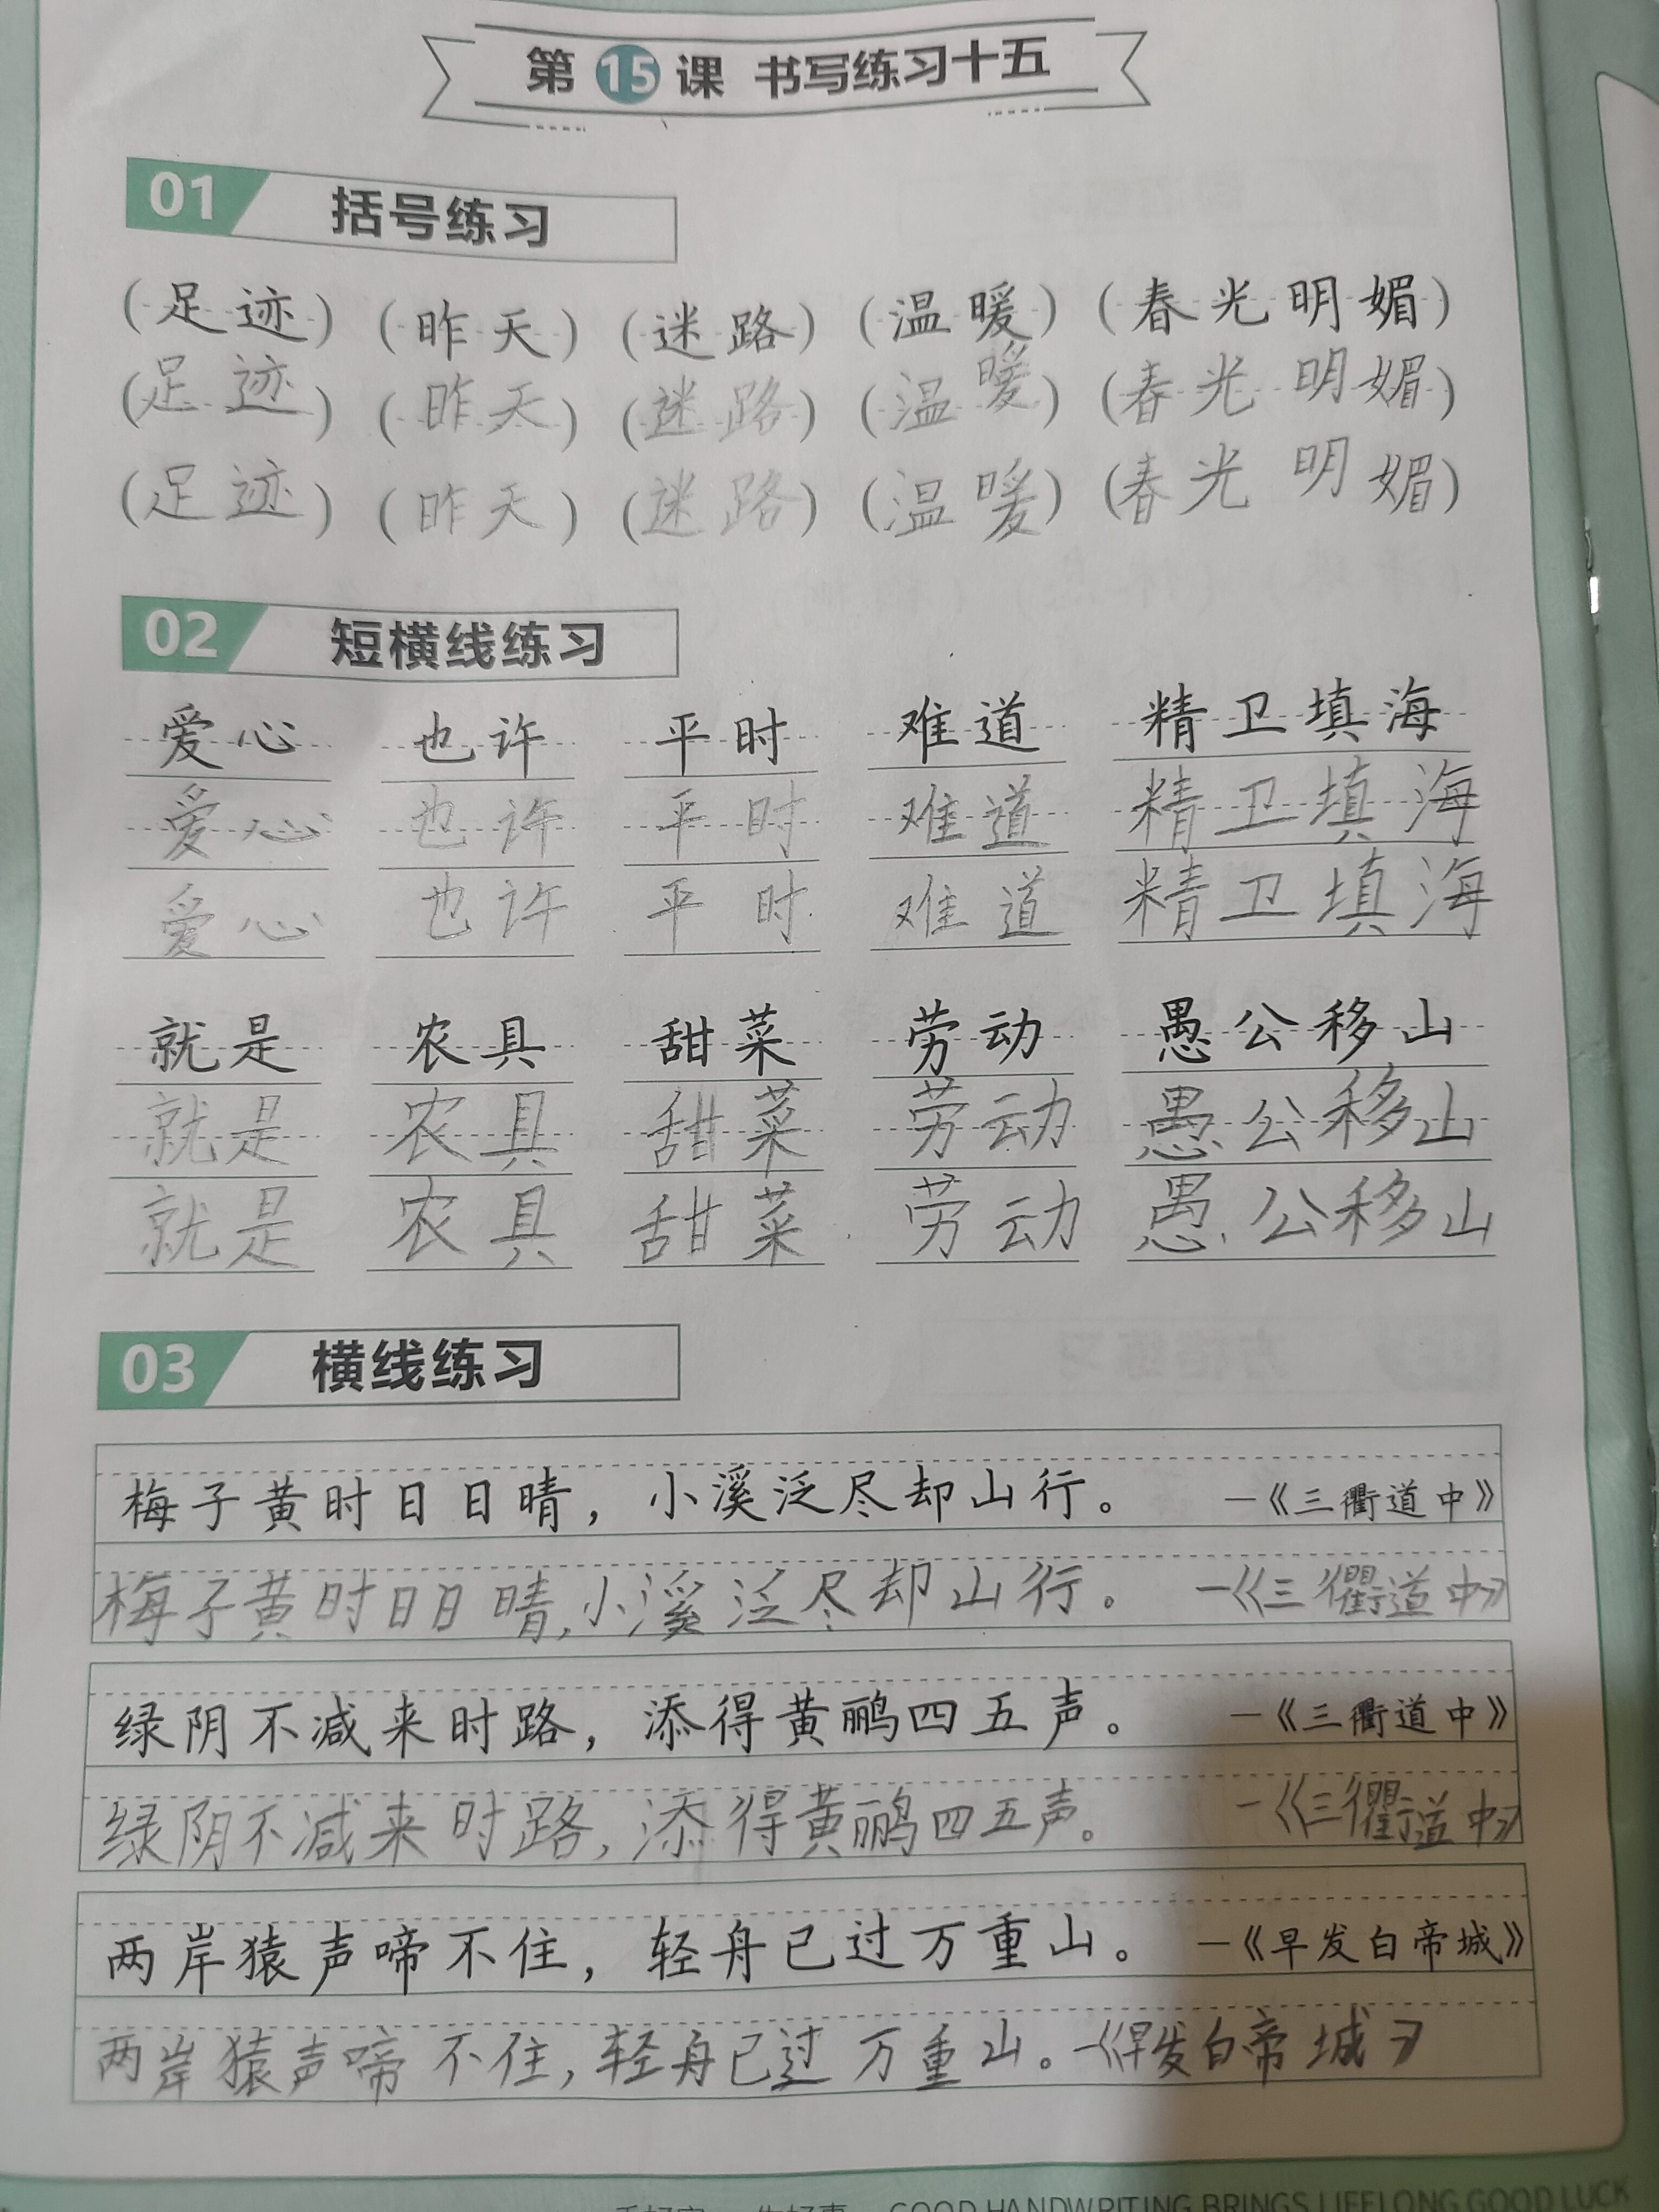 第 15 课 书写练习十五
01 括号练习
(足迹) (昨天) (迷路) (温暖) (春光明媚)
(足迹) (昨天) (迷路) (温暖) (春光明媚)
(足迹) (昨天) (迷路) (温暖) (春光明媚)
02 短横线练习
爱心 也许 平时 难道 精卫填海
爱心 也许 平时 难道 精卫填海
爱心 也许 平时 难道 精卫填海
就是 农具 甜菜 劳动 愚公移山
就是 农具 甜菜 劳动 愚公移山
就是 农具 甜菜 劳动 愚公移山
03 横线练习
梅子黄时日日晴，小溪泛尽却山行。 —《三衢道中》
梅子黄时日日晴，小溪泛尽却山行。 —《三衢道中》
绿阴不减来时路，添得黄鹂四五声。 —《三衢道中》
绿阴不减来时路，添得黄鹂四五声。 —《三衢道中》
两岸猿声啼不住，轻舟已过万重山。 —《早发白帝城》
两岸猿声啼不住，轻舟已过万重山。—《早发白帝城》
GOOD HANDWRITING BRINGS LIFELONG GOOD LUCK